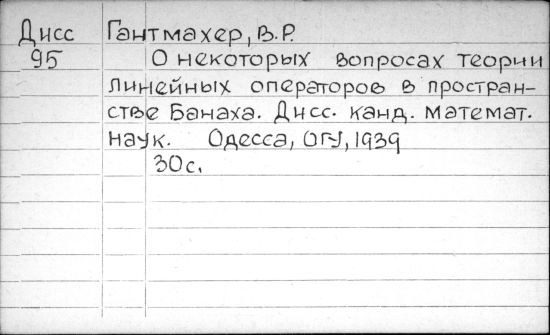 Дисс Гантмахер, В.Р.
95 О некоторых вопросах теории
линейных операторов в простран-
стве Банаха. Дисс. канд. математ.
наук. Одесса, ОГУ, 1939
30с.